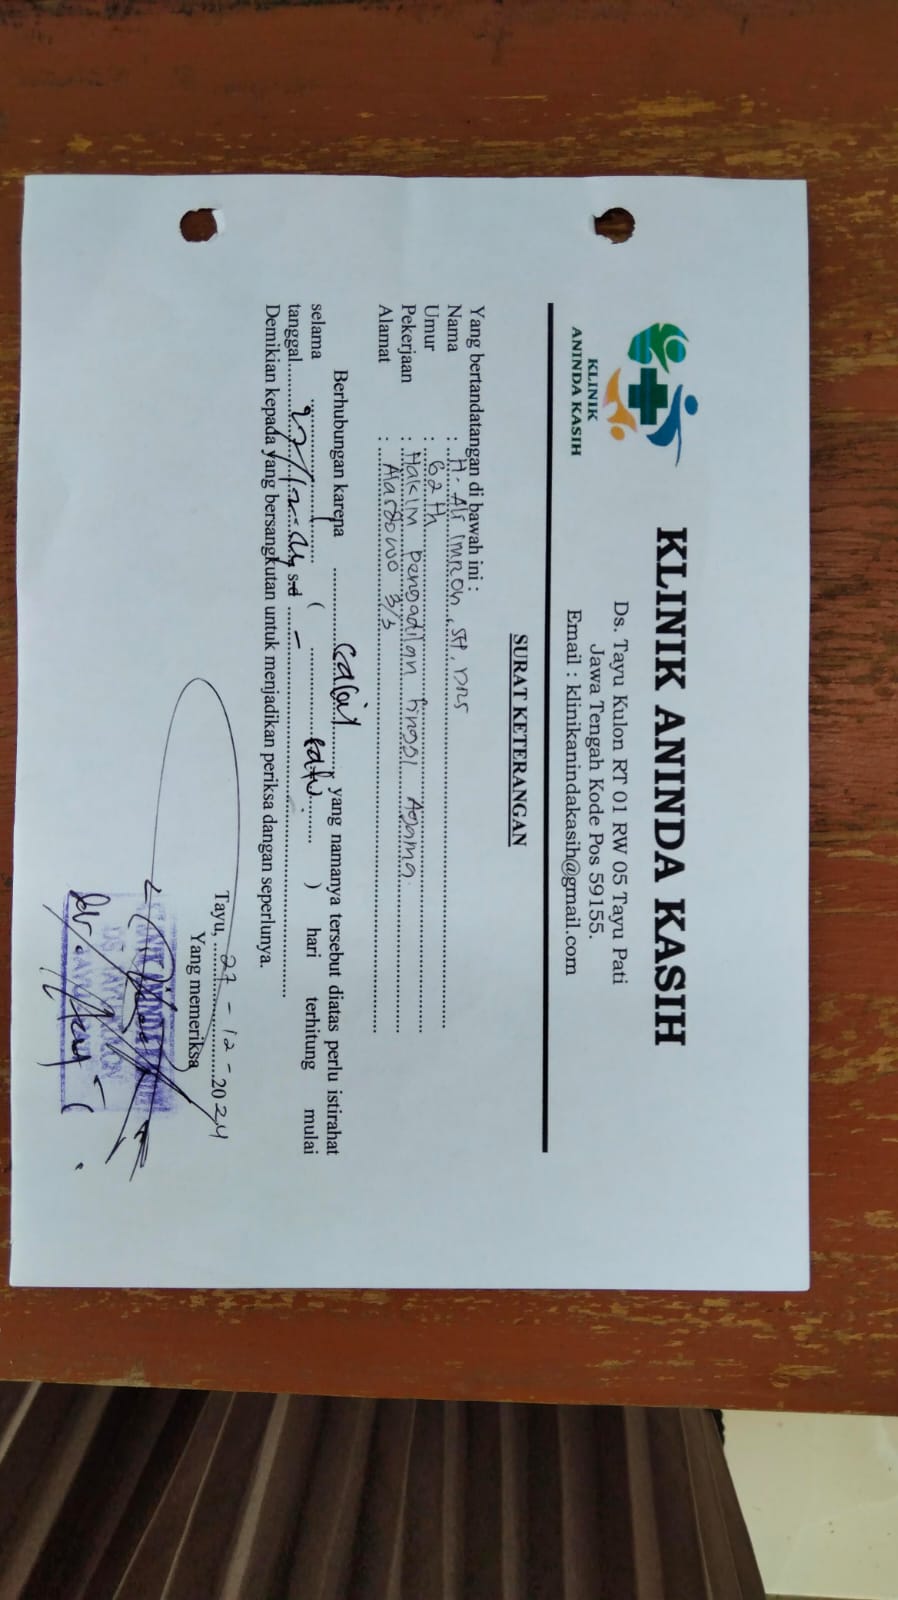 KLINIK
ANINDA KASIH
KLINIK ANINDA KASIH
Ds. Tayu Kulon RT 01 RW 05 Tayu Pati
Jawa Tengah Kode Pos 59155.
Email : klinikanindakasih@gmail.com
SURAT KETERANGAN
Yang bertandatangan di bawah ini :
Nama : H. Ali Imron, SH, DRS
Umur : 62 th
Pekerjaan : Hakim Pengadilan Tinggi Agama.
Alamat : 3/3
Berhubungan karena Sakit yang namanya tersebut diatas perlu istirahat
selama 1 ( satu ) hari terhitung mulai
tanggal 27/12-24 sd -
Demikian kepada yang bersangkutan untuk menjadikan periksa dangan seperlunya.
Tayu, 27-12-2024
Yang memeriksa
dr.